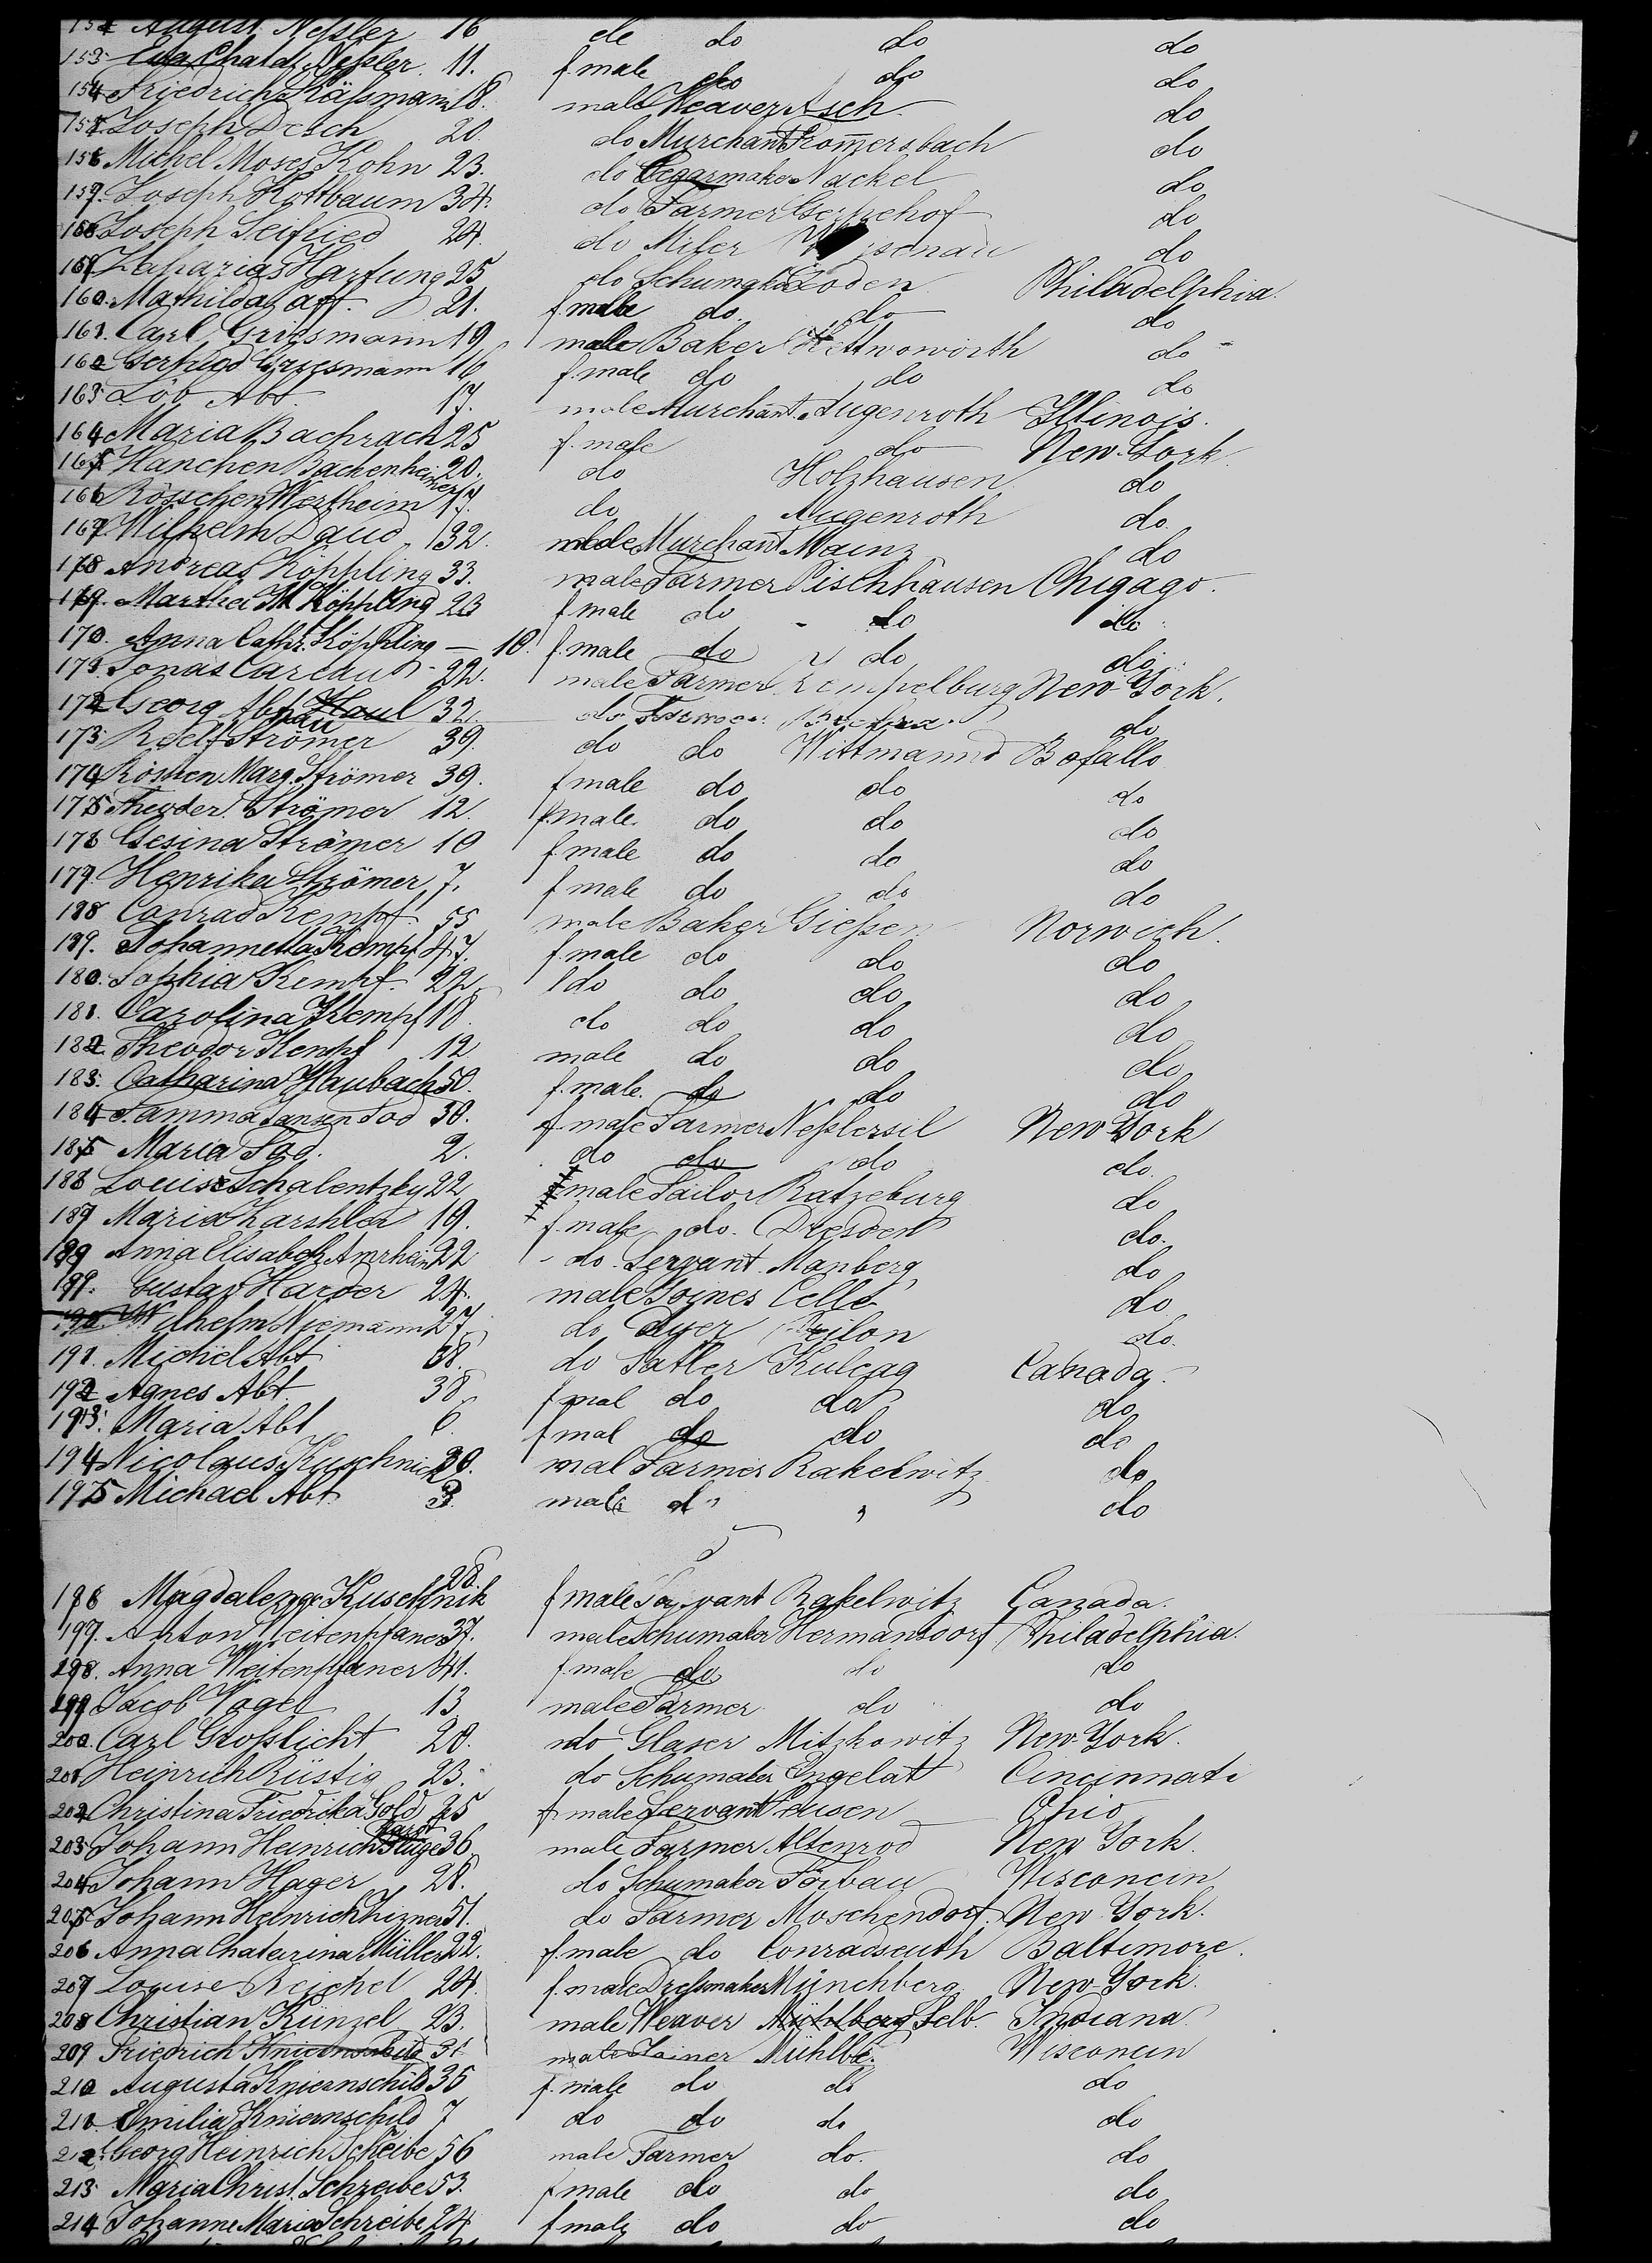 August Neßler 16 do do do
153 Eva Chald Neßler 11. f. male do do do
154 Friedrich Käßmann 18. male Weaver Asch do
155 Joseph Desch 20. do Murchant Rom̄ersbach do
156 Michel Moses Kohn 23. do Cegarmaker Nackel do
157. Joseph Kottbaum 34. do Farmer do
158 Joseph Seifried 24. do Miler do
159 Zaharias Hartung 25 do Schumaker Loden Philadelphia.
160. Mathilda 21. f. male do. do do
161. Carl Griesmann 19 male Baker do
162 Griesmann 16 f. male do do do
163 Löb Abt. 17. male Murchant Augenroth Illinois.
164 Maria Bachrach 25 f. male do New-York.
165 Hanchen Backenheimer 20. do Holzhausen do
166 Rösschen Wertheim 17. do Augenroth do.
167. Wilhelm Daud 32. male Murchant Mainz do
168 Andreas Köppling 33. male Farmer Pischhausen Chigago.
169. Martha M Köppling 23 f male do do do
170. Anna Cathr. Köppling — 10. f. male do do do
171 Jonas 22. male Farmer Zempelburg New-York.
172 Georg 32. do do
173 Roelf Strömer 39. do do Wittmannd Bofallo
174 Röshen Marg. Strömer 39. f male do do do
175 Theoder Strömer 12. f. male. do do do
176 Gesina Strömer 10 f male do do do
177. Henrika Strömer 7. f male do do do
178 Conrad Kempf 55 male Baker Gießen Norwich.
179. Johannetta Kempf 47. f. male do do do
180. Sophia Kempf 22. do do do do
181. Carolina Kempf 18. do do do do
182 Theodor Kempf 12 male do do do
183. Catharina Haubach 50. f. male. do do do
184 Tamma Jansen Tod 30. f. male Farmer Neßlersil New York
185 Maria Tod. 2. do do do do.
186 Louise Schalentzky 22 male Tailor Ratzeburg do
187 Maria Karshler 19. f. male do. Dresden do.
188 Anna Elisabeth Amrhein 22 do. Servant Manberg do
189. Gustav Harder 24. male Goines Celle do
190. Wilhelm Niemann 27 do Dyer do.
191. Michel Abt 38. do Satler Kulcag Canada.
192 Agnes Abt. 38 f mal do do do
193. Maria Abt 6. f mal do do do
194 Nicolaus Kuschnick 30. mal Farmer Rakelwitz do
195 Michael Abt. 3. male do " do
196 Magdalena Kuschnik 28. f male Servant Rakelwitz Canada.
197. Anton Weitenpfaner 37. male Schumaker Hermansdorf Philadelphia.
198. Anna Weitenpfaner 41. f. male do do do
199 Jacob Vogel 13 male Farmer do do
200. Carl Großlicht 28. do Glaser Mitzkowitz New-York.
201 Heinrich Rüstig 23. do Schumaker Engelat Cincinnati
202 Christina Friedrika Gold 25 f. male Servant Ohio
203 Johann Heinrich 36 male Farmer Altenrod New York.
204 Johann Hager 28. do Schumaker Förbau Wisconcin
205 Johann Heinrich 51. do Farmer Moschendorf New York.
206 Anna Chatarina Müller 22. f. male do Conradsreuth Baltimore.
207 Louise Reichel 24. f. male Dreßmaker Münchberg New-York.
208 Christian Künzel 23. male Weaver Selb. Indiana
209 Friedrich Kniernschild 31 male Mühlbl. Wisconcin
210 Augusta Kniernschild 35 f. male do do do
211 Emilia Kniernschild 7 do do do do
212. Georg Heinrich Scheibe 56 male Farmer do. do
213 Maria Christ. Schreibe 53. f male do do do
214 Johanne Maria Schreibe 24 f male do do do